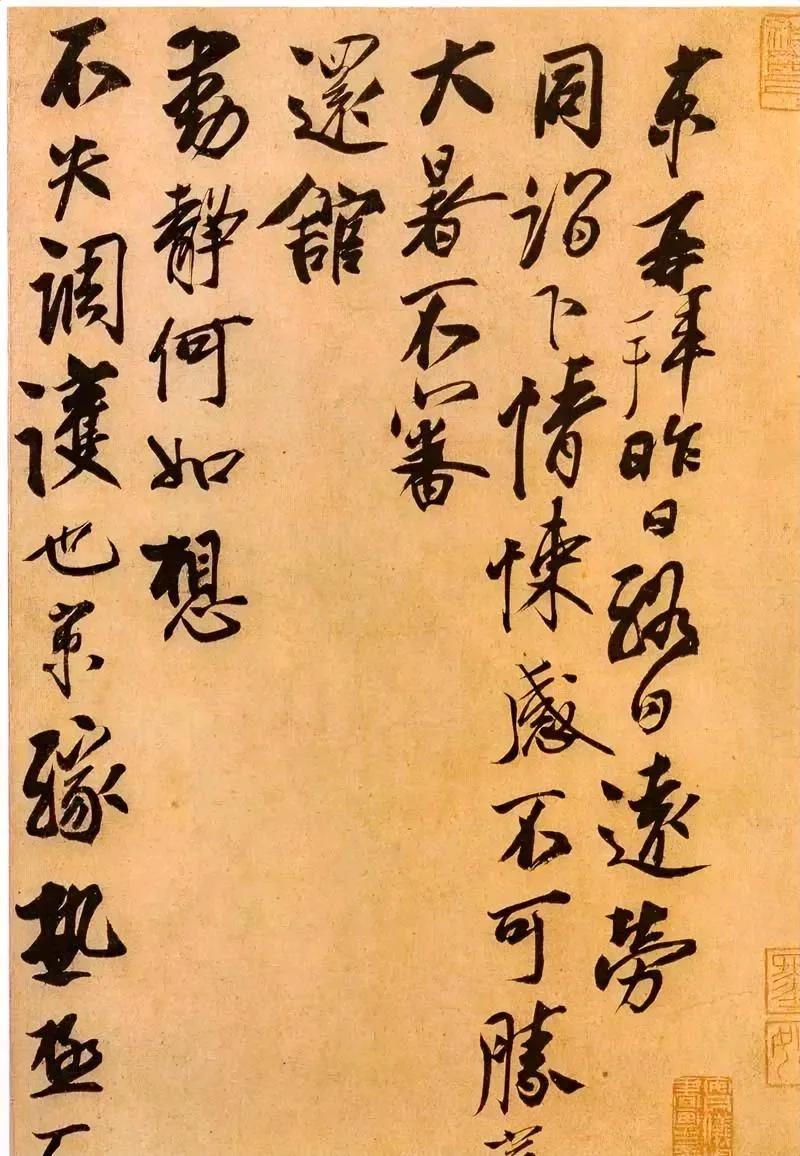 京再拜昨日終日遠勞
同詣下情悚感不可勝
大暑不審
還館
動靜何如想
不失調護也京緣熱極不